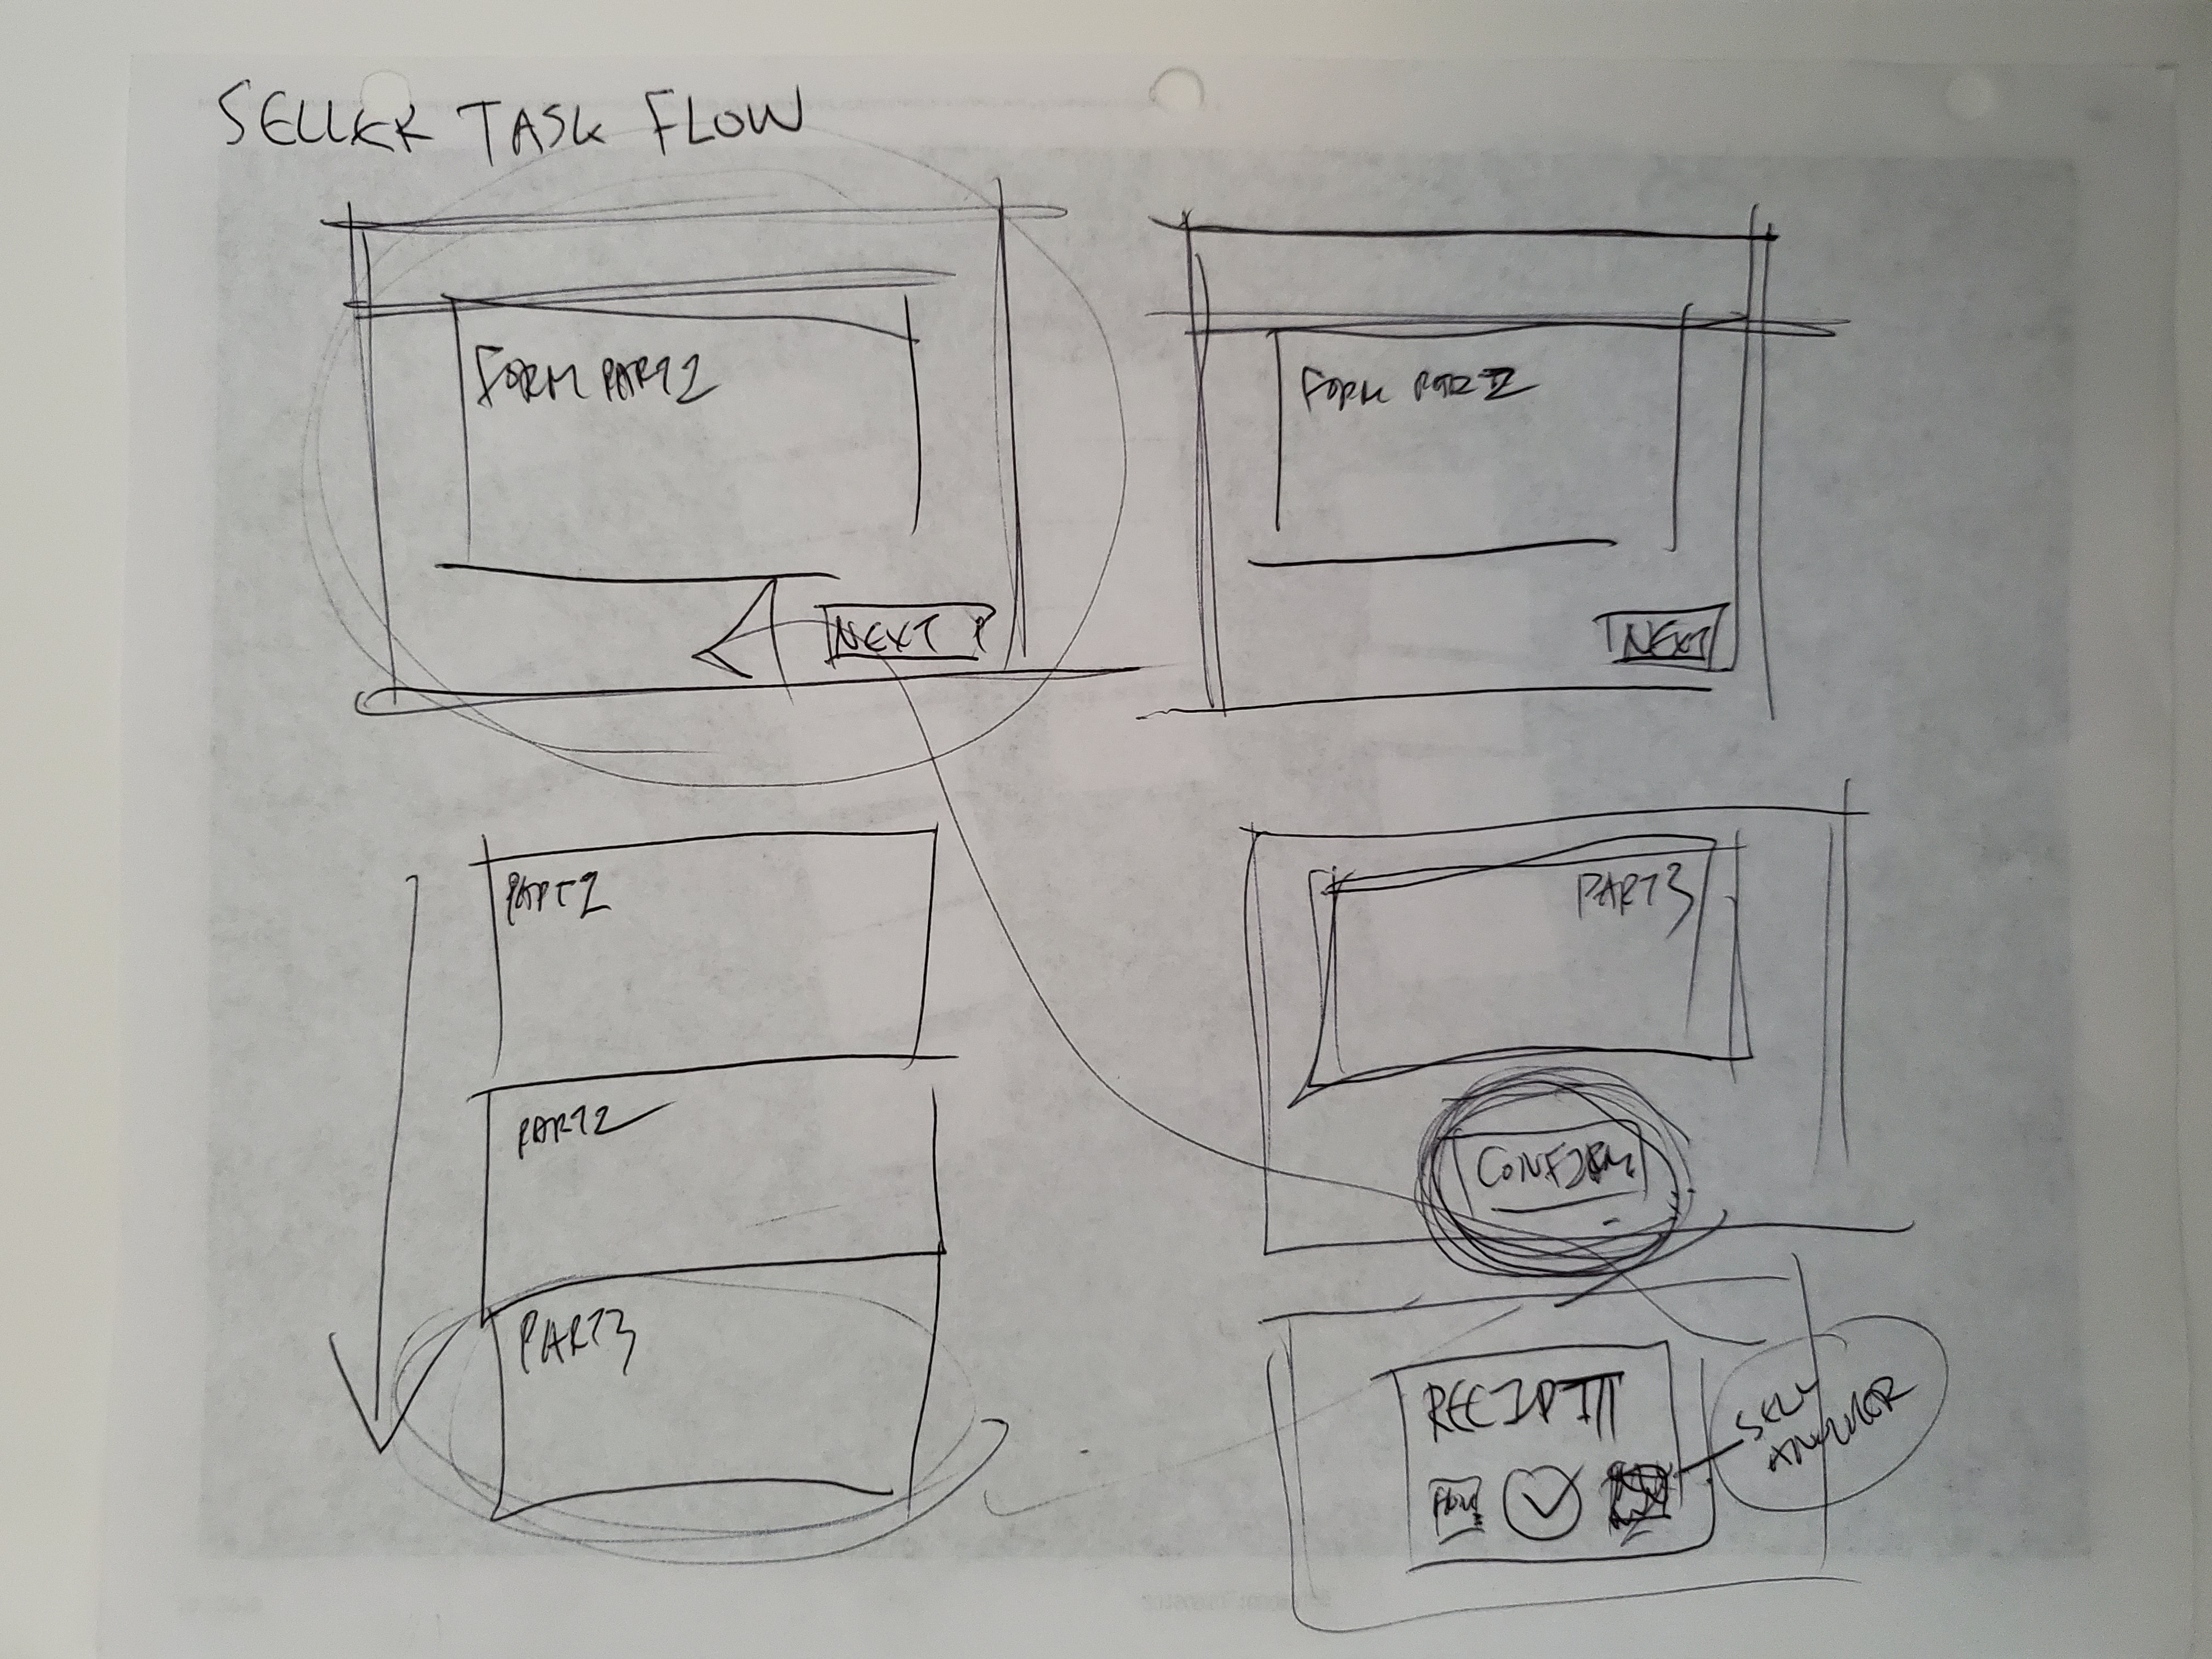 SELLER TASK FLOW
FORM PART 1
NEXT
FORM PART 2
NEXT
PART 1
PART 2
PART 3
PART 3
CONFIRM
RECIPT
SELL
ANOTHER